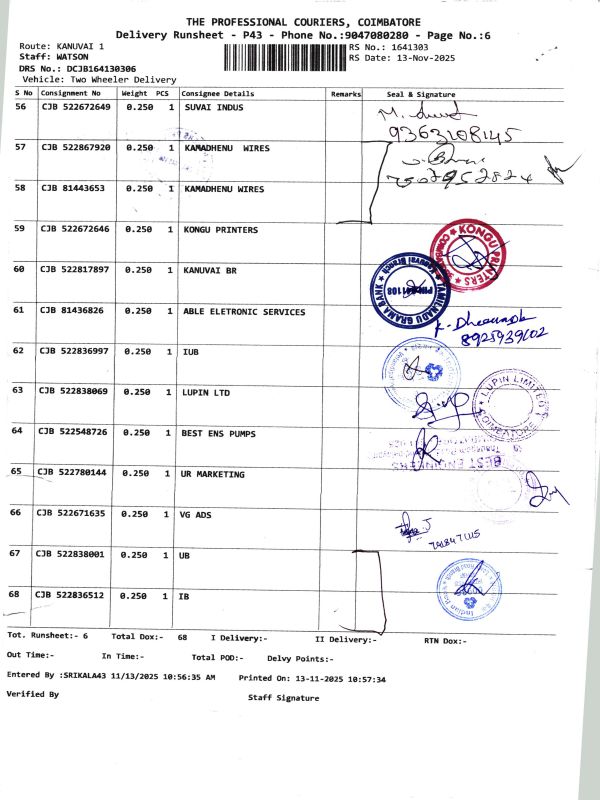 THE PROFESSIONAL COURIERS, COIMBATORE
Delivery Runsheet - P43 - Phone No.:9047080280 - Page No.:6
Route: KANUVAI 1 RS No.: 1641303
Staff: WATSON RS Date: 13-Nov-2025
DRS No.: DCJB164130306
Vehicle: Two Wheeler Delivery
S No Consignment No Weight PCS Consignee Details Remarks Seal & Signature
56 CJB 522672649 0.250 1 SUVAI INDUS
9363108145
57 CJB 522867920 0.250 1 KAMADHENU WIRES
58 CJB 81443653 0.250 1 KAMADHENU WIRES
59 CJB 522672646 0.250 1 KONGU PRINTERS
KONGU PRINTERS
60 CJB 522817897 0.250 1 KANUVAI BR
TAMILNADU GRAMA BANK
Kanuvai Branch
61 CJB 81436826 0.250 1 ABLE ELETRONIC SERVICES
8925939602
62 CJB 522836997 0.250 1 IUB
63 CJB 522838069 0.250 1 LUPIN LTD
LUPIN LIMITED
COIMBATORE
64 CJB 522548726 0.250 1 BEST ENS PUMPS
65 CJB 522780144 0.250 1 UR MARKETING
66 CJB 522671635 0.250 1 VG ADS
67 CJB 522838001 0.250 1 UB
68 CJB 522836512 0.250 1 IB
Indian Bank
Tot. Runsheet:- 6 Total Dox:- 68 I Delivery:- II Delivery:- RTN Dox:-
Out Time:- In Time:- Total POD:- Delvy Points:-
Entered By :SRIKALA43 11/13/2025 10:56:35 AM Printed On: 13-11-2025 10:57:34
Verified By Staff Signature